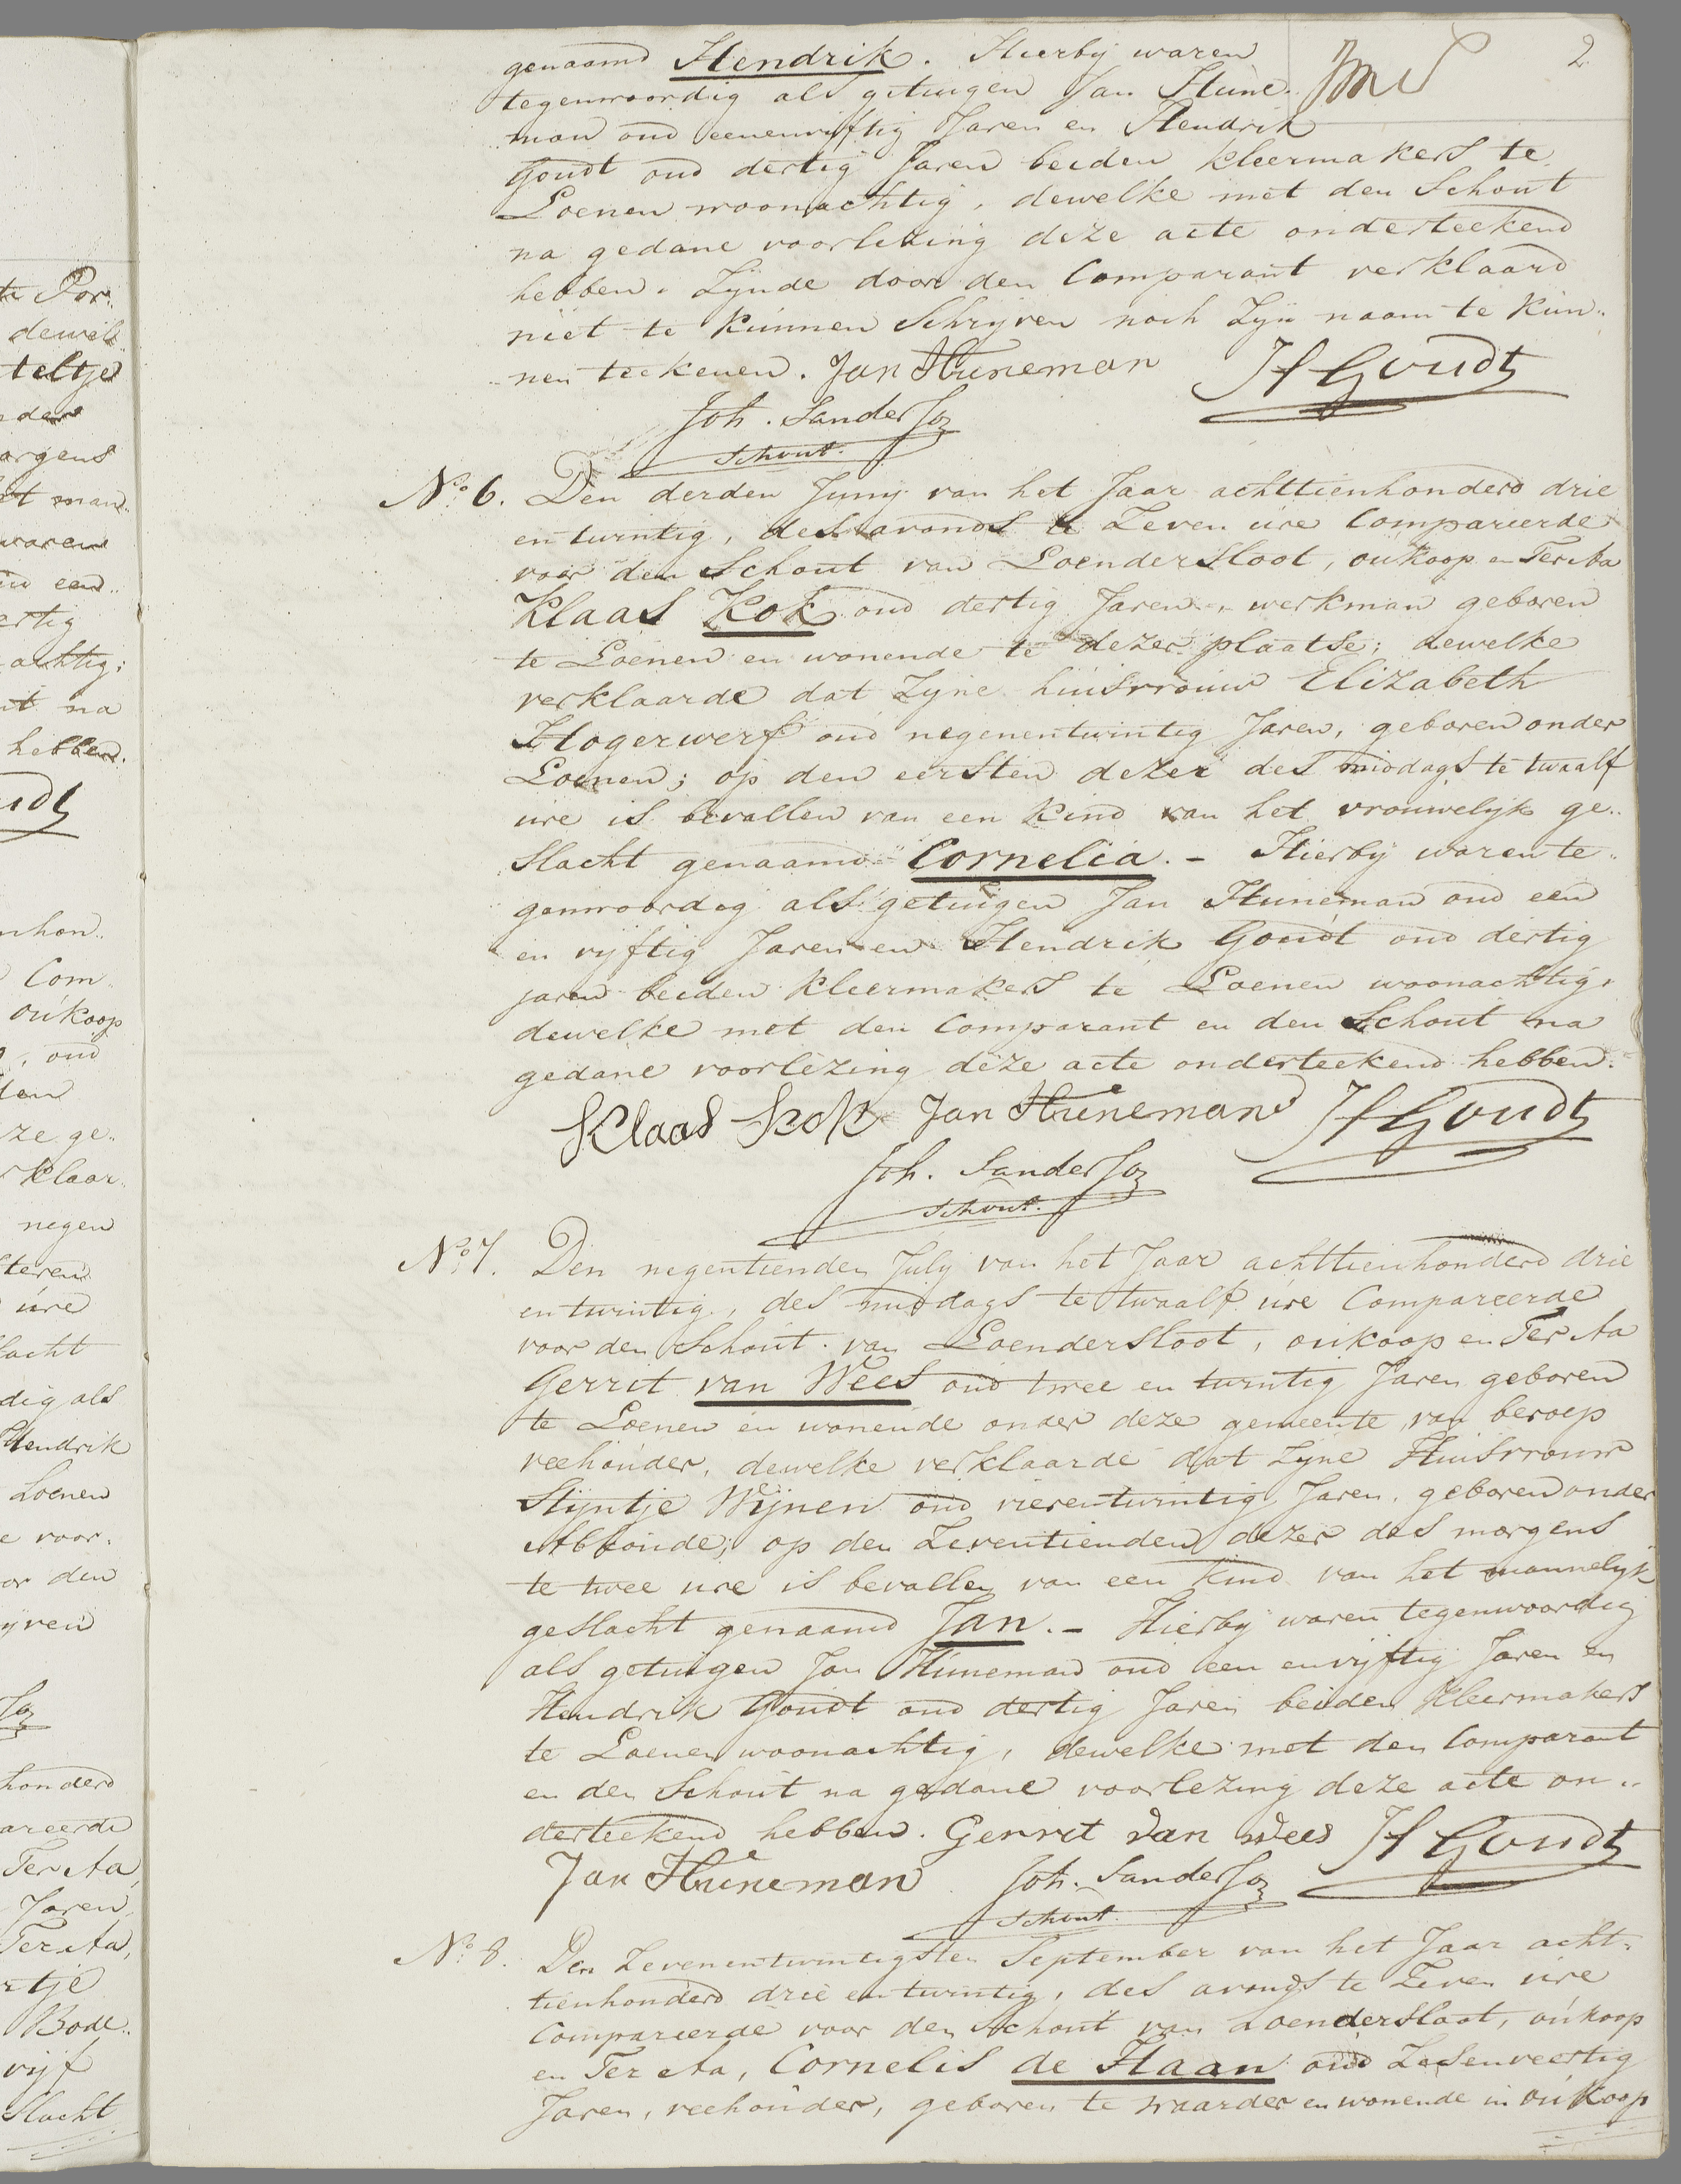 2
genaamd Hendrik. Hierbÿ waren
tegenwoordig als getuigen Jan Hune
man oud eenenvyftig Jaren en Hendrik
Goudt oud dertig Jaren beiden kleermakers te
Loenen woonachtig, dewelke met den Schout
na gedane voorlezing deze acte onderteekend
hebben. Zÿnde door den Comparant verklaard
niet te kunnen Schryven noch Zÿn naam te kun„
„nen teekenen. Jan Huneman H Goudt
Joh. Sander Jz
Schout.
No. 6. Den derden Juny van het Jaar achttienhonderd drie
en twintig, des avonds te Zeven ure Compareerde
voor den Schout van Loendersloot, oukoop en Ter Aa
Klaas Kok oud dertig Jaren, werkman geboren
te Loenen en wonende te dezer plaatse; dewelke
verklaarde dat Zÿne huisvrouw Elizabeth
Hogerwerf oud negenentwintig Jaren, geboren onder
Loenen; op den eersten dezer des middags te twaalf
ure is bevallen van een kind van het vrouwelyk ge„
slacht genaamd Cornelia. - Hierbÿ waren te„
genwoordig als getuigen Jan Huneman oud een
en vÿftig Jaren en Hendrik Goudt oud dertig
jaren beiden kleermakers te Loenen woonachtig,
dewelke met den Comparant en den Schout na
gedane voorlezing deze acte onderteekend hebben.
Klaas Kok Jan Huneman H Goudt
Joh. Sander Jz
Schout.
No. 7. Den negentienden July van het Jaar achttienhonderd drie
en twintig, des middags te twaalf ure Compareerde
voor den Schout van Loendersloot, oukoop en Ter Aa
Gerrit van Wees oud twee en twintig Jaren geboren
te Loenen en wonende onder deze gemeente van beroep
veehouder, dewelke verklaarde dat zÿne Huisvrouw
Stÿntje Wÿnen oud vierentwintig Jaren, geboren onder
Abkoude; op den Zeventienden dezer des morgens
te twee ure is bevallen van een kind van het mannelyk
geslacht genaamd Jan. - Hierbÿ waren tegenwoordig
als getuigen Jan Huneman oud een en vyftig Jaren en
Hendrik Goudt oud dertig Jaren beiden Kleermakers
te Loenen woonachtig, dewelke met den Comparant
en den Schout na gedane voorlezing deze acte on„
derteekend hebben. Gerret van Wees H Goudt
Jan Huneman Joh. Sander Jz
Schout.
No. 8. Den Zevenentwintigsten September van het Jaar acht„
tienhonderd drie en twintig, des avonds te Zeven ure
Compareerde voor den Schout van Loendersloot, oukoop
en Ter Aa, Cornelis de Haan oud Zesenveertig
Jaren, veehouder, geboren te Waarder en wonende in oukoop